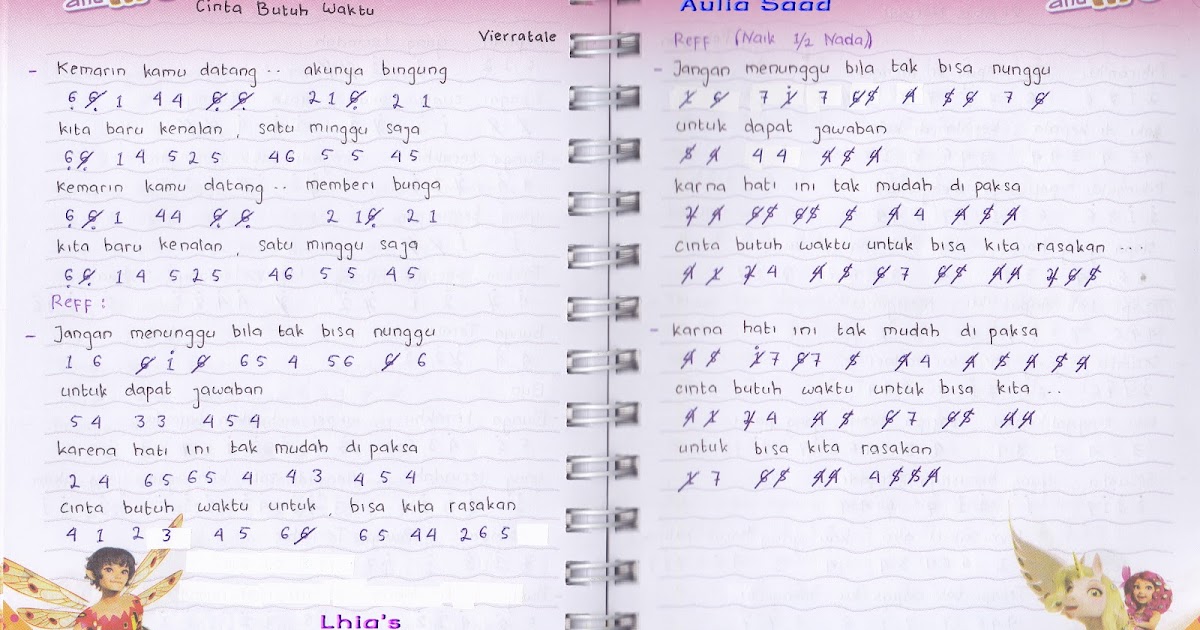 Cinta Butuh Waktu
Vierratale
- Kemarin kamu datang .. akunya bingung
6̣ 6̸̣ 1 4 4 6̸̣ 6̸̣ 2 1 6̸̣ 2 1
kita baru kenalan , satu minggu saja
6̣ 6̸̣ 1 4 5 2 5 4 6 5 5 4 5
Kemarin kamu datang .. memberi bunga
6̣ 6̸̣ 1 4 4 6̸̣ 6̸̣ 2 1 6̸̣ 2 1
kita baru kenalan , satu minggu saja
6̣ 6̸̣ 1 4 5 2 5 4 6 5 5 4 5
Reff :
- Jangan menunggu bila tak bisa nunggu
1 6 6̸ i 6̸ 6 5 4 5 6 6̸ 6
untuk dapat jawaban
5 4 3 3 4 5 4
karena hati ini tak mudah di paksa
2 4 6 5 6 5 4 4 3 4 5 4
cinta butuh waktu untuk , bisa kita rasakan
4 1 2 3 4 5 6 6̸ 6 5 4 4 2 6 5
Lhia's
Aulia Saad
Reff (Naik 1/2 Nada)
- Jangan menunggu bila tak bisa nunggu
1̸ 6̸ 7 1̸̇ 7 6̸ 5̸ 4̸ 5̸ 6̸ 7 6̸
untuk dapat jawaban
5̸ 4̸ 4 4 4̸ 5̸ 4̸
karna hati ini tak mudah di paksa
2̸ 4̸ 6̸ 5̸ 6̸ 5̸ 5̸ 4̸ 4 4̸ 5̸ 4̸
cinta butuh waktu untuk bisa kita rasakan ...
4̸ 1̸ 2̸ 4 4̸ 5̸ 6̸ 7 6̸ 5̸ 4̸ 4̸ 2̸ 6̸ 5̸
- karna hati ini tak mudah di paksa
4̸ 5̸ 1̸̇ 7 6̸ 7 5̸ 4̸ 4 4̸ 5̸ 4̸ 5̸ 4̸
cinta butuh waktu untuk bisa kita ..
4̸ 1̸ 2̸ 4 4̸ 5̸ 6̸ 7 6̸ 5̸ 4̸ 4̸
untuk bisa kita rasakan
1̸ 7 6̸ 5̸ 4̸ 4̸ 4 5̸ 5̸ 4̸